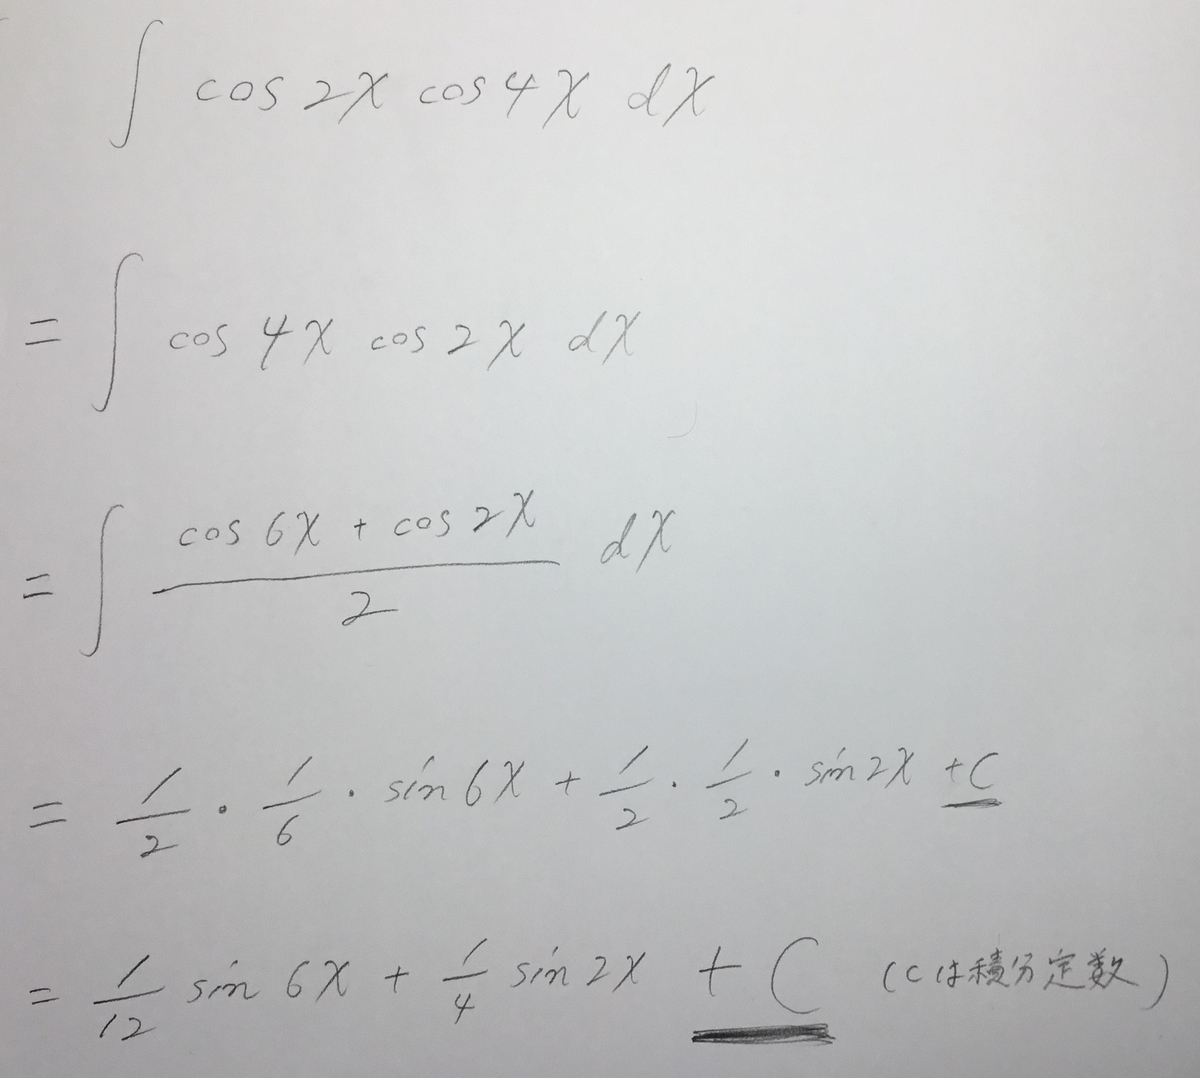 ∫ cos 2x cos 4x dx
= ∫ cos 4x cos 2x dx
= ∫ (cos 6x + cos 2x)/2 dx
= 1/2 · 1/6 · sin 6x + 1/2 · 1/2 · sin 2x + C
= 1/12 sin 6x + 1/4 sin 2x + C (Cは積分定数)